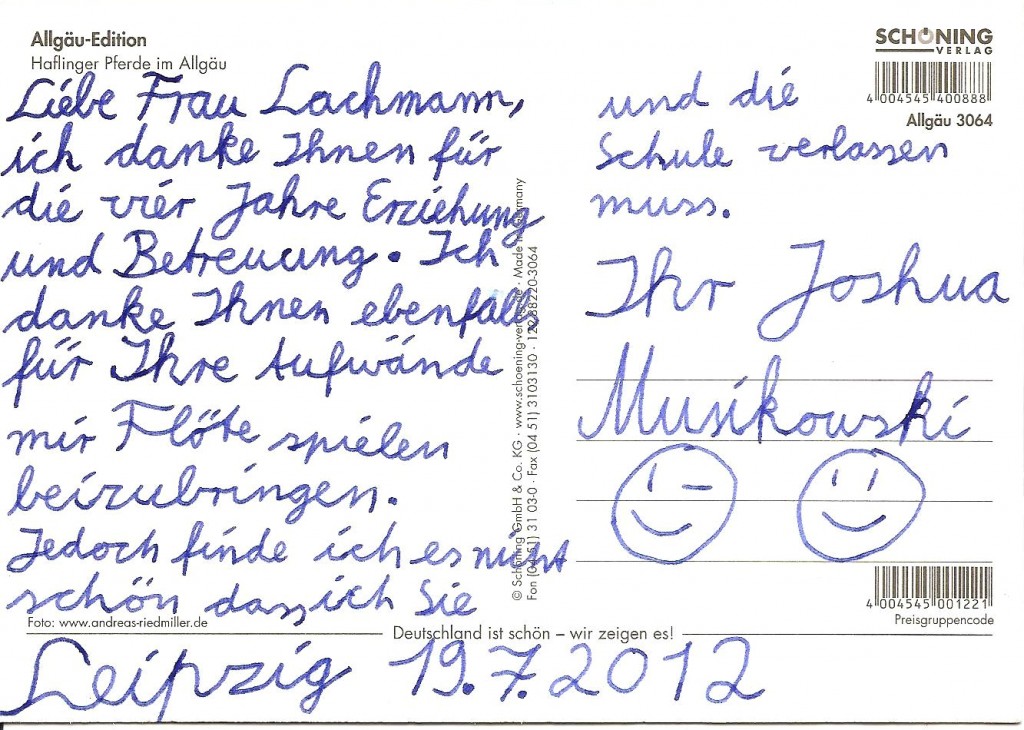 Allgäu-Edition
Haflinger Pferde im Allgäu
Liebe Frau Lachmann,
ich danke Ihnen für
die vier Jahre Erziehung
und Betreuung. Ich
danke Ihnen ebenfalls
für Ihre Aufwände
mir Flöte spielen
beizubringen.
Jedoch finde ich es nicht
schön dass ich Sie
Foto: www.andreas-riedmiller.de
© Schöning GmbH & Co. KG · www.schoening-verlag.de · Made in Germany
Fon (04 51) 31 03-0 · Fax (04 51) 3103130 ·
SCHÖNING
VERLAG
4 004545 400888
Allgäu 3064
und die
Schule verlassen
muss.
Ihr Joshua
Musikowski
4 004545 001221
Preisgruppencode
Deutschland ist schön – wir zeigen es!
Leipzig 19.7.2012